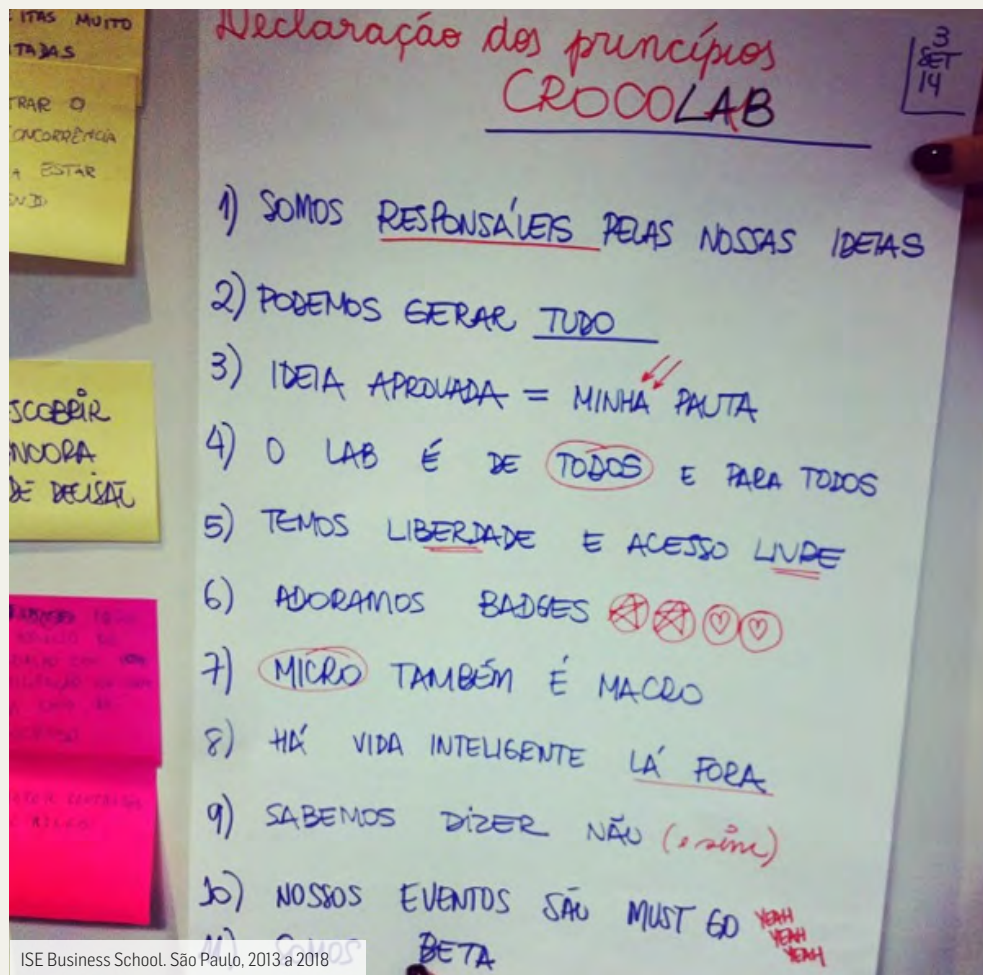 ITAS MUITO
TADAS
TRAR O
ONCORRÊNCIA
A ESTAR
SCOBRIR
NCORA
DE DECISÃO
Declaração dos princípios
CROCOLAB
3
SET
14
1) SOMOS RESPONSÁVEIS PELAS NOSSAS IDEIAS
2) PODEMOS GERAR TUDO
3) IDEIA APROVADA = MINHA PAUTA
4) O LAB É DE TODOS E PARA TODOS
5) TEMOS LIBERDADE E ACESSO LIVRE
6) ADORAMOS BADGES
7) MICRO TAMBÉM É MACRO
8) HÁ VIDA INTELIGENTE LÁ FORA
9) SABEMOS DIZER NÃO (e sim)
10) NOSSOS EVENTOS SÃO MUST GO YEAH
YEAH
YEAH
11) SOMOS BETA
ISE Business School. São Paulo, 2013 a 2018